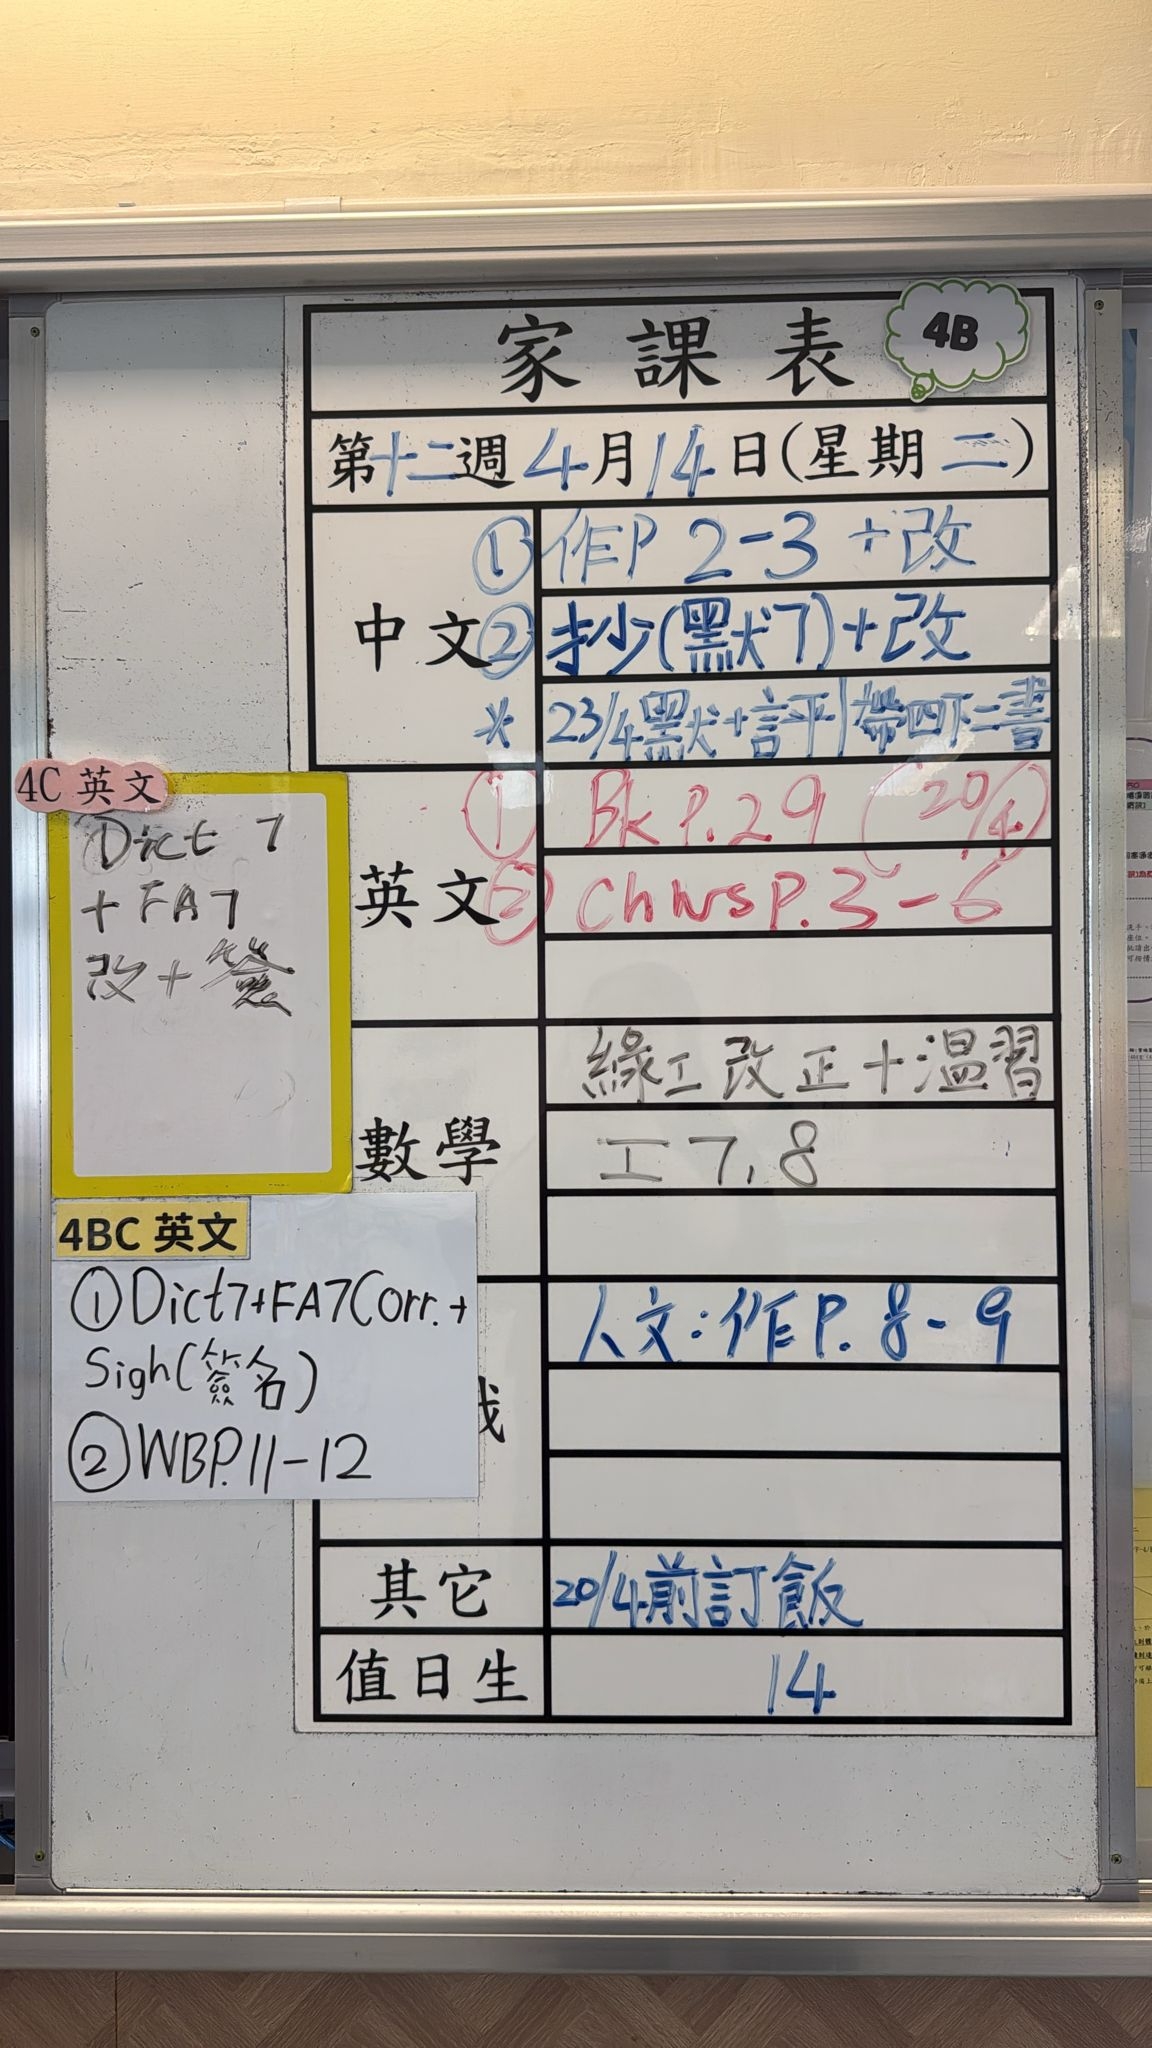 家課表
4B
第十二週4月14日(星期二)
中文
① 作P 2-3 +改
② 抄(默7)+改
* 23/4默+評|帶四下二書
英文
① Bk P.29 (20/4)
② Ch Ws P.3-6
數學
綠工改正+温習
工7,8
人文:作P.8-9
其它
20/4前訂飯
值日生
14
4C 英文
Dict 7
+ FA7
改+簽
4BC 英文
①Dict7+FA7Corr.+
Sigh(簽名)
②WBP.11-12